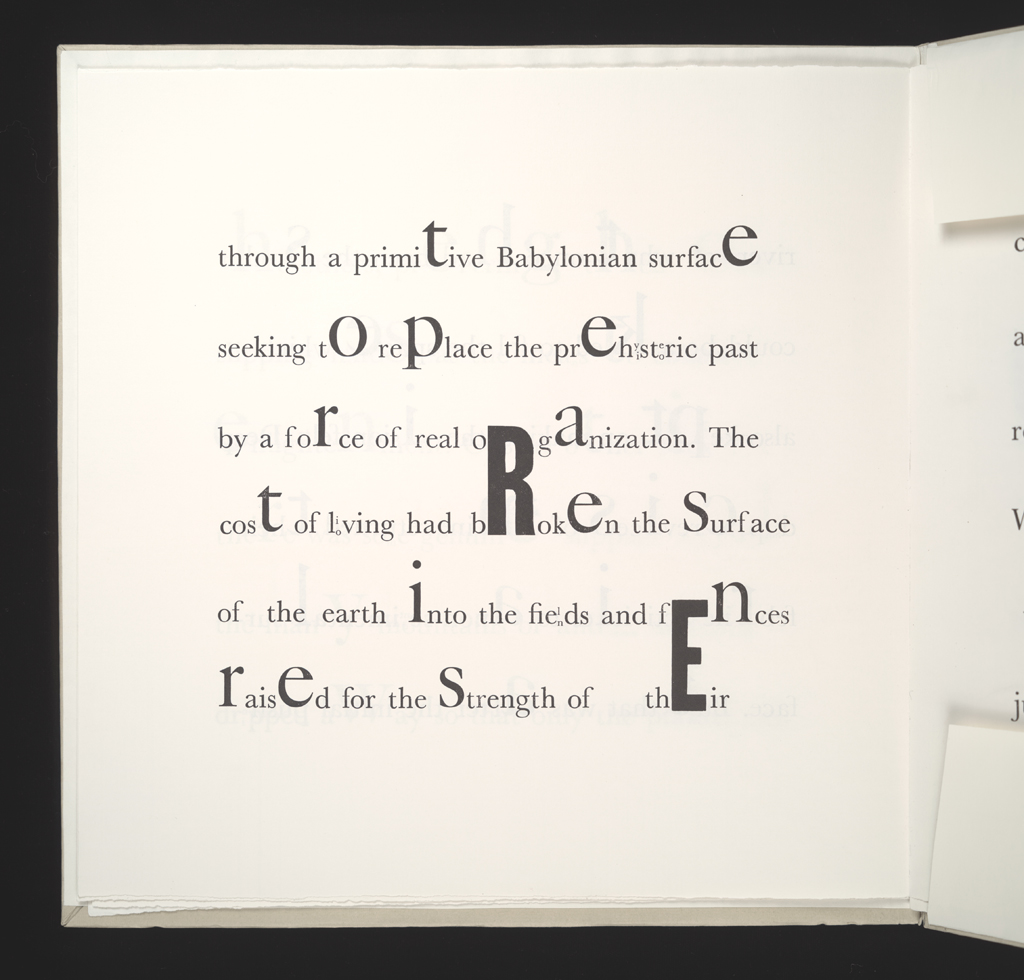 through a primitive Babylonian surface
seeking to replace the prehistoric past
by a force of real oRganization. The
cost of living had bRoken the Surface
of the earth into the fields and fEnces
raised for the Strength of thEir